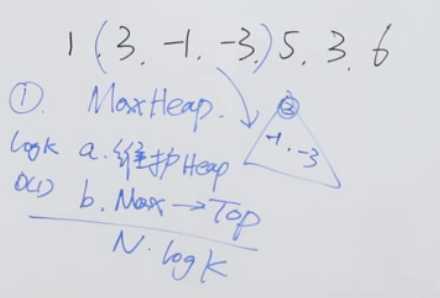 1 (3. -1. -3.) 5. 3. 6
①. MaxHeap.
③
-1. -3
logk a. 维护Heap
O(1) b. Max → Top
N. logk